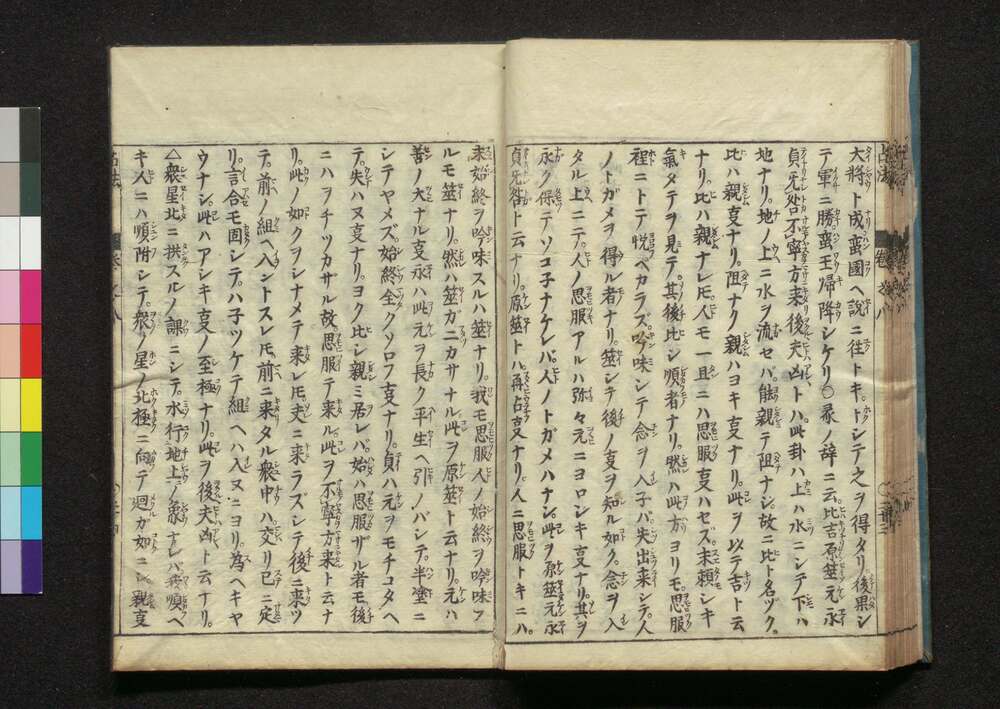 大將ト成蛮國ヘ説ニ往トキ。トシテ之ヲ得タリ。後果シ
テ軍ニ勝蛮王帰降シケリ〇彖ノ辞ニ云。比吉原筮元永
貞旡咎不寧方来後夫凶。トハ。此卦ハ上ハ水ニシテ下ハ
地ナリ。地ノ上ニ水ヲ流セバ。能親テ阻ナシ。故ニ比ト名ヅク。
比ハ親亥ナリ。阻ナク親ハヨキ亥ナリ。此ヲ以テ吉ト云
ナリ。比ハ親ナレ𪜈。人モ一旦ニハ思服亥ハセズ。末頼シキ
氣メテヲ見テ。其後比シ順者ナリ。然ハ此方ヨリモ。思服
程ニトテ悦ベカラズ。吟味シテ念ヲ入子バ。失出来シテ。人
ノトガメヲ得ル者ナリ。筮シテ後ノ亥ヲ知ル如ク。念ヲ入
タル上ニテ。人ノ思服アルハ弥々元ニヨロシキ亥ナリ。其ヲ
永ク保テソコ子ナケレバ。人ノトガメハナシ。此ヲ原筮元永
貞旡咎ト云ナリ。原筮トハ。再占亥ナリ。人ニ思服トキニハ。
末始終ヲ吟味スルハ筮ナリ。我モ思服人ノ始終ヲ吟味フ
ルモ筮ナリ。然ハ筮ガ二カサナル。此ヲ原筮ト云ナリ。元ハ
善ノ大ナル亥永ハ此元ヲ長ク平生ヘ引ノバシテ。半塗ニ
シテヤメズ。始終全クソロフ亥ナリ。貞ハ元ヲモチコタヘ
テ。失ハヌ亥ナリ。ヨク比シ親ミ居レバ。始ハ思服ザル者モ後
ニハヲチツカザル故思服テ来ル。此ヲ不寧方来トハ云ナ
リ。此ノ如クヲシナメテ来レ𪜈。夫ニ来ラズシテ後ニ来ツ
テ。前ノ組ヘ入ントスレ𪜈。前ニ来タル衆中ハ。交リ已ニ定
リ。言合モ固シテ。ハ子ツケテ組ヘハ入ヌニヨリ。為ヘキヤ
ウナシ。此ハアシキ亥ノ至極ナリ。此ヲ後夫凶ト云ナリ。
△衆星北ニ拱スルノ課ニシテ。水行地上ノ象ナレバ。務順ヘ
キ人ニハ順附シテ。衆ノ星ノ北極ニ向テ廻ガ如ニシ親亥